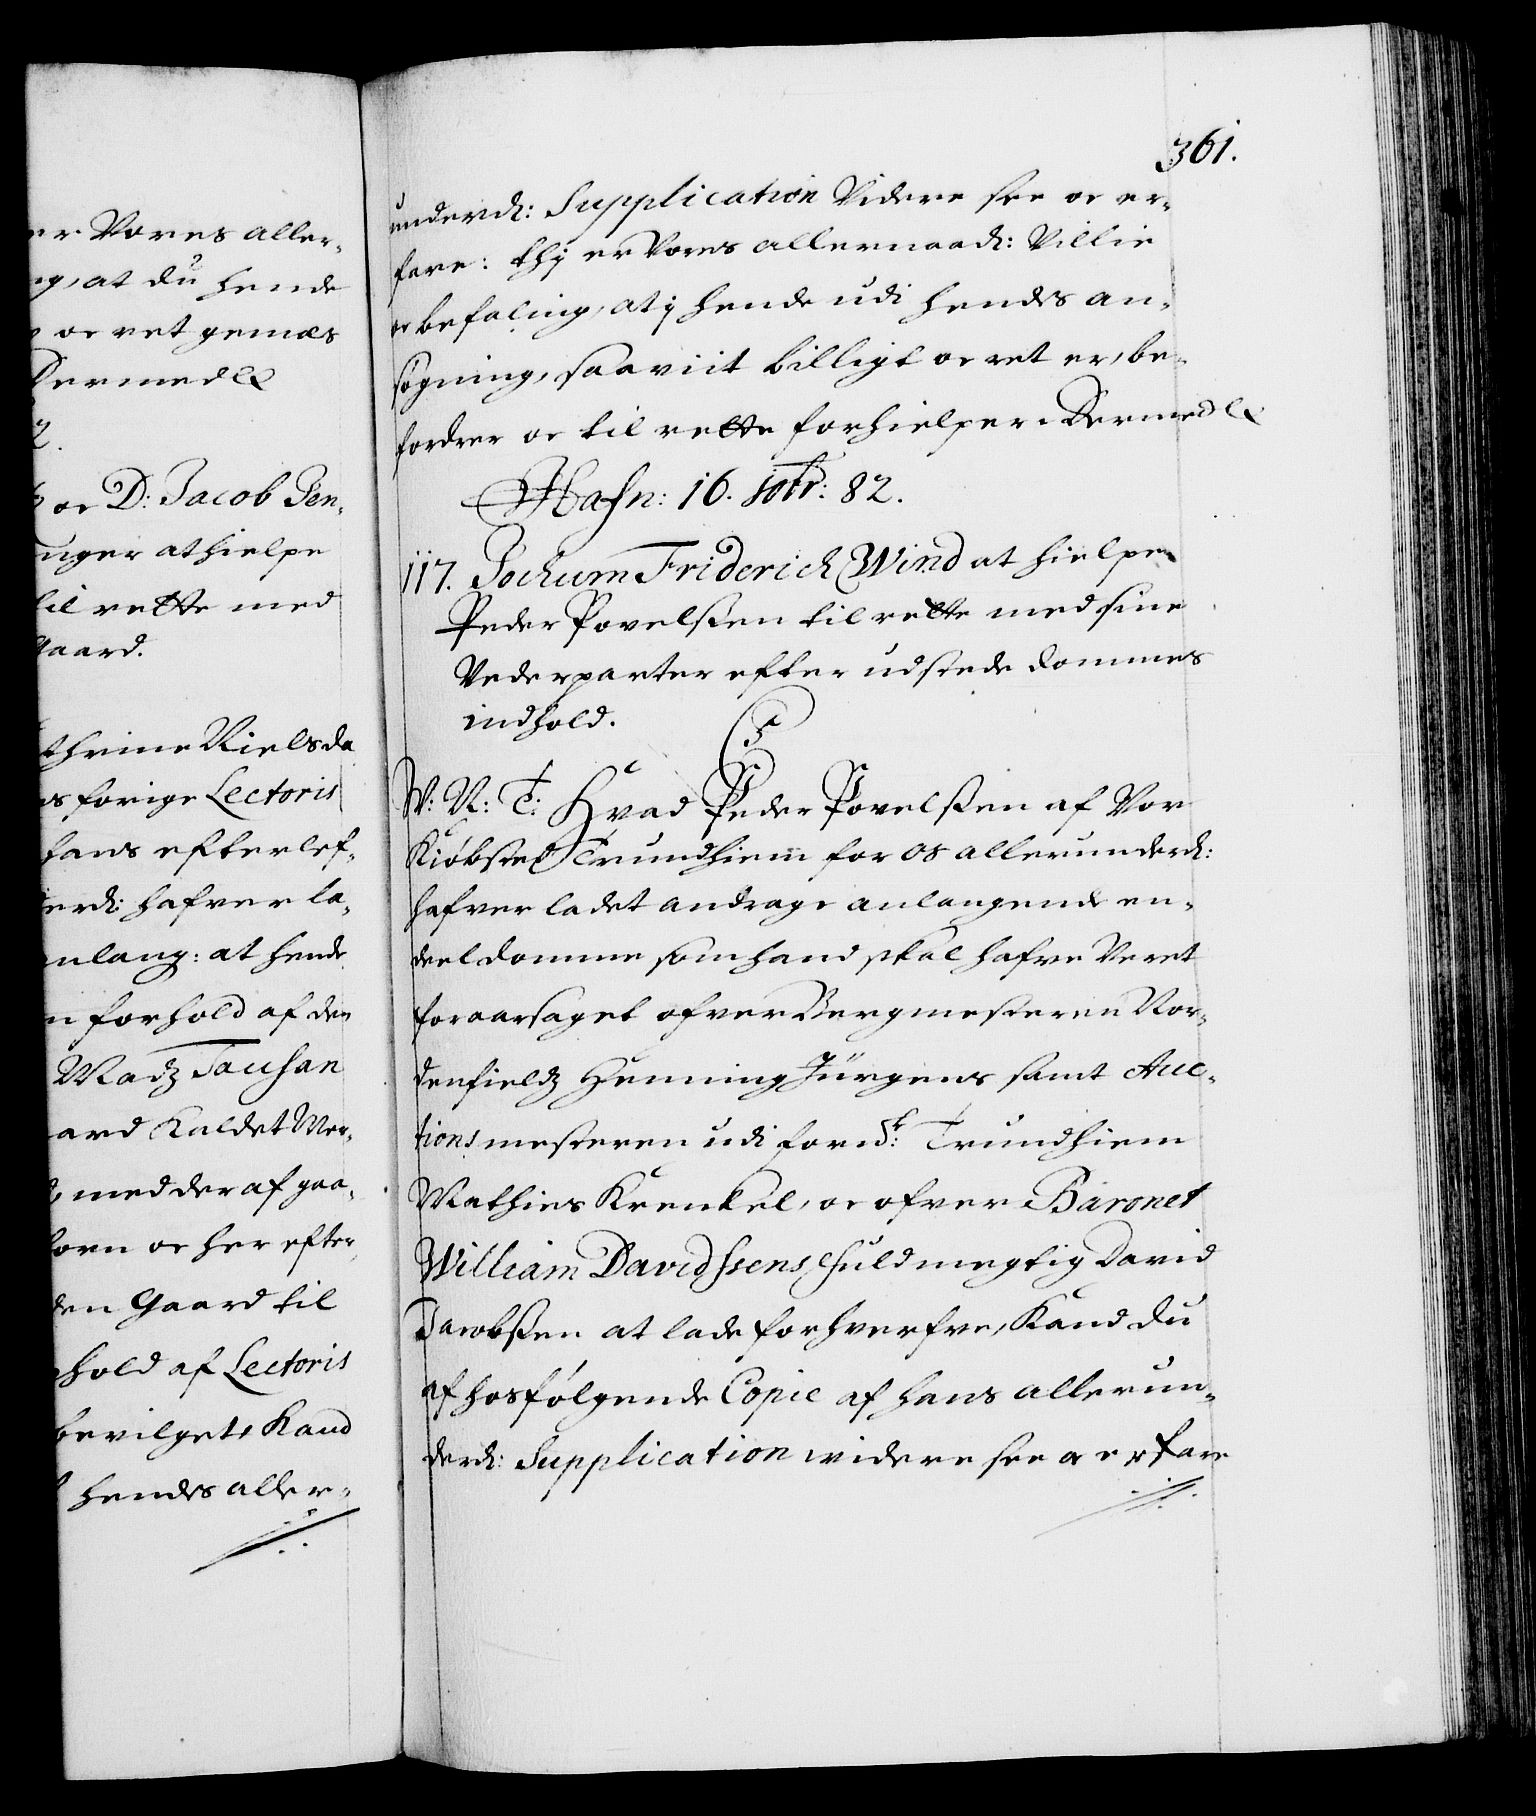 er Vores aller-
ng, at du hende
oc ret gemæs
Dermed &
2.
oc D: Jacob Jen-
nger at hielpe
til rette med
Gaard.
thrine Nielsda
os forige Lectoris
hans efterlef-
derd: hafver la-
anlang: at hende
n forhold af den
Madz Tausan
aard Kaldet Mor-
med der af gaa-
foren oc her efter
den Gaard til
hold af Lectoris
bevilget, Kand
hendes aller-
361.
underd: Supplication Videre see oc er-
fare: thj er Vores allernaad: Villie
oc befaling, at j hende udi hendes an-
søgning, saa viit billigt oc ret er, be-
fordrer oc til rette forhielper. Dermed &
Hafn: 16. 10br: 82.
117. Jochum Friderich Wind at hielpe
Peder Povelssen til rette med sine
Vederparter efter udstede dommes
indhold.
C5
W: V: T: Hvad Peder Povelssen af Vor
Kiøbsted Trundhiem for os allerunderd:
hafver ladet andrage anlangende en-
deel domme som hand skal hafve Veret
foraarsaget ofver Bergmesteren Nor-
denfieldz Henning Jürgens samt Auc-
tions mesteren udi fornde: Trundhiem
Mathies Krenkel, oc ofver Baronet
William Davidssens fuldmegtig David
Jacobssen at lade forhverfve, Kand du
af hosfølgende Copie af hans allerun-
derd: Supplication widere see oc erfare